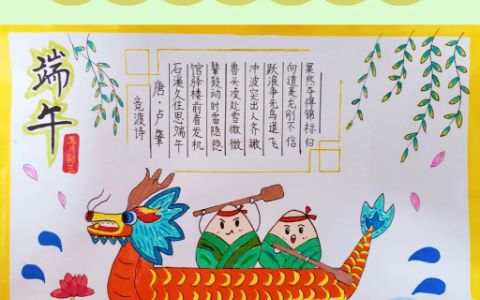 端午
五月初五
竞渡诗
唐·卢肇
石溪久住思端午
馆驿楼前看发机
鼙鼓动时雷隐隐
兽头凌处雪微微
冲波突出人齐譀
跃浪争先鸟退飞
向道是龙刚不信
果然夺得锦标归